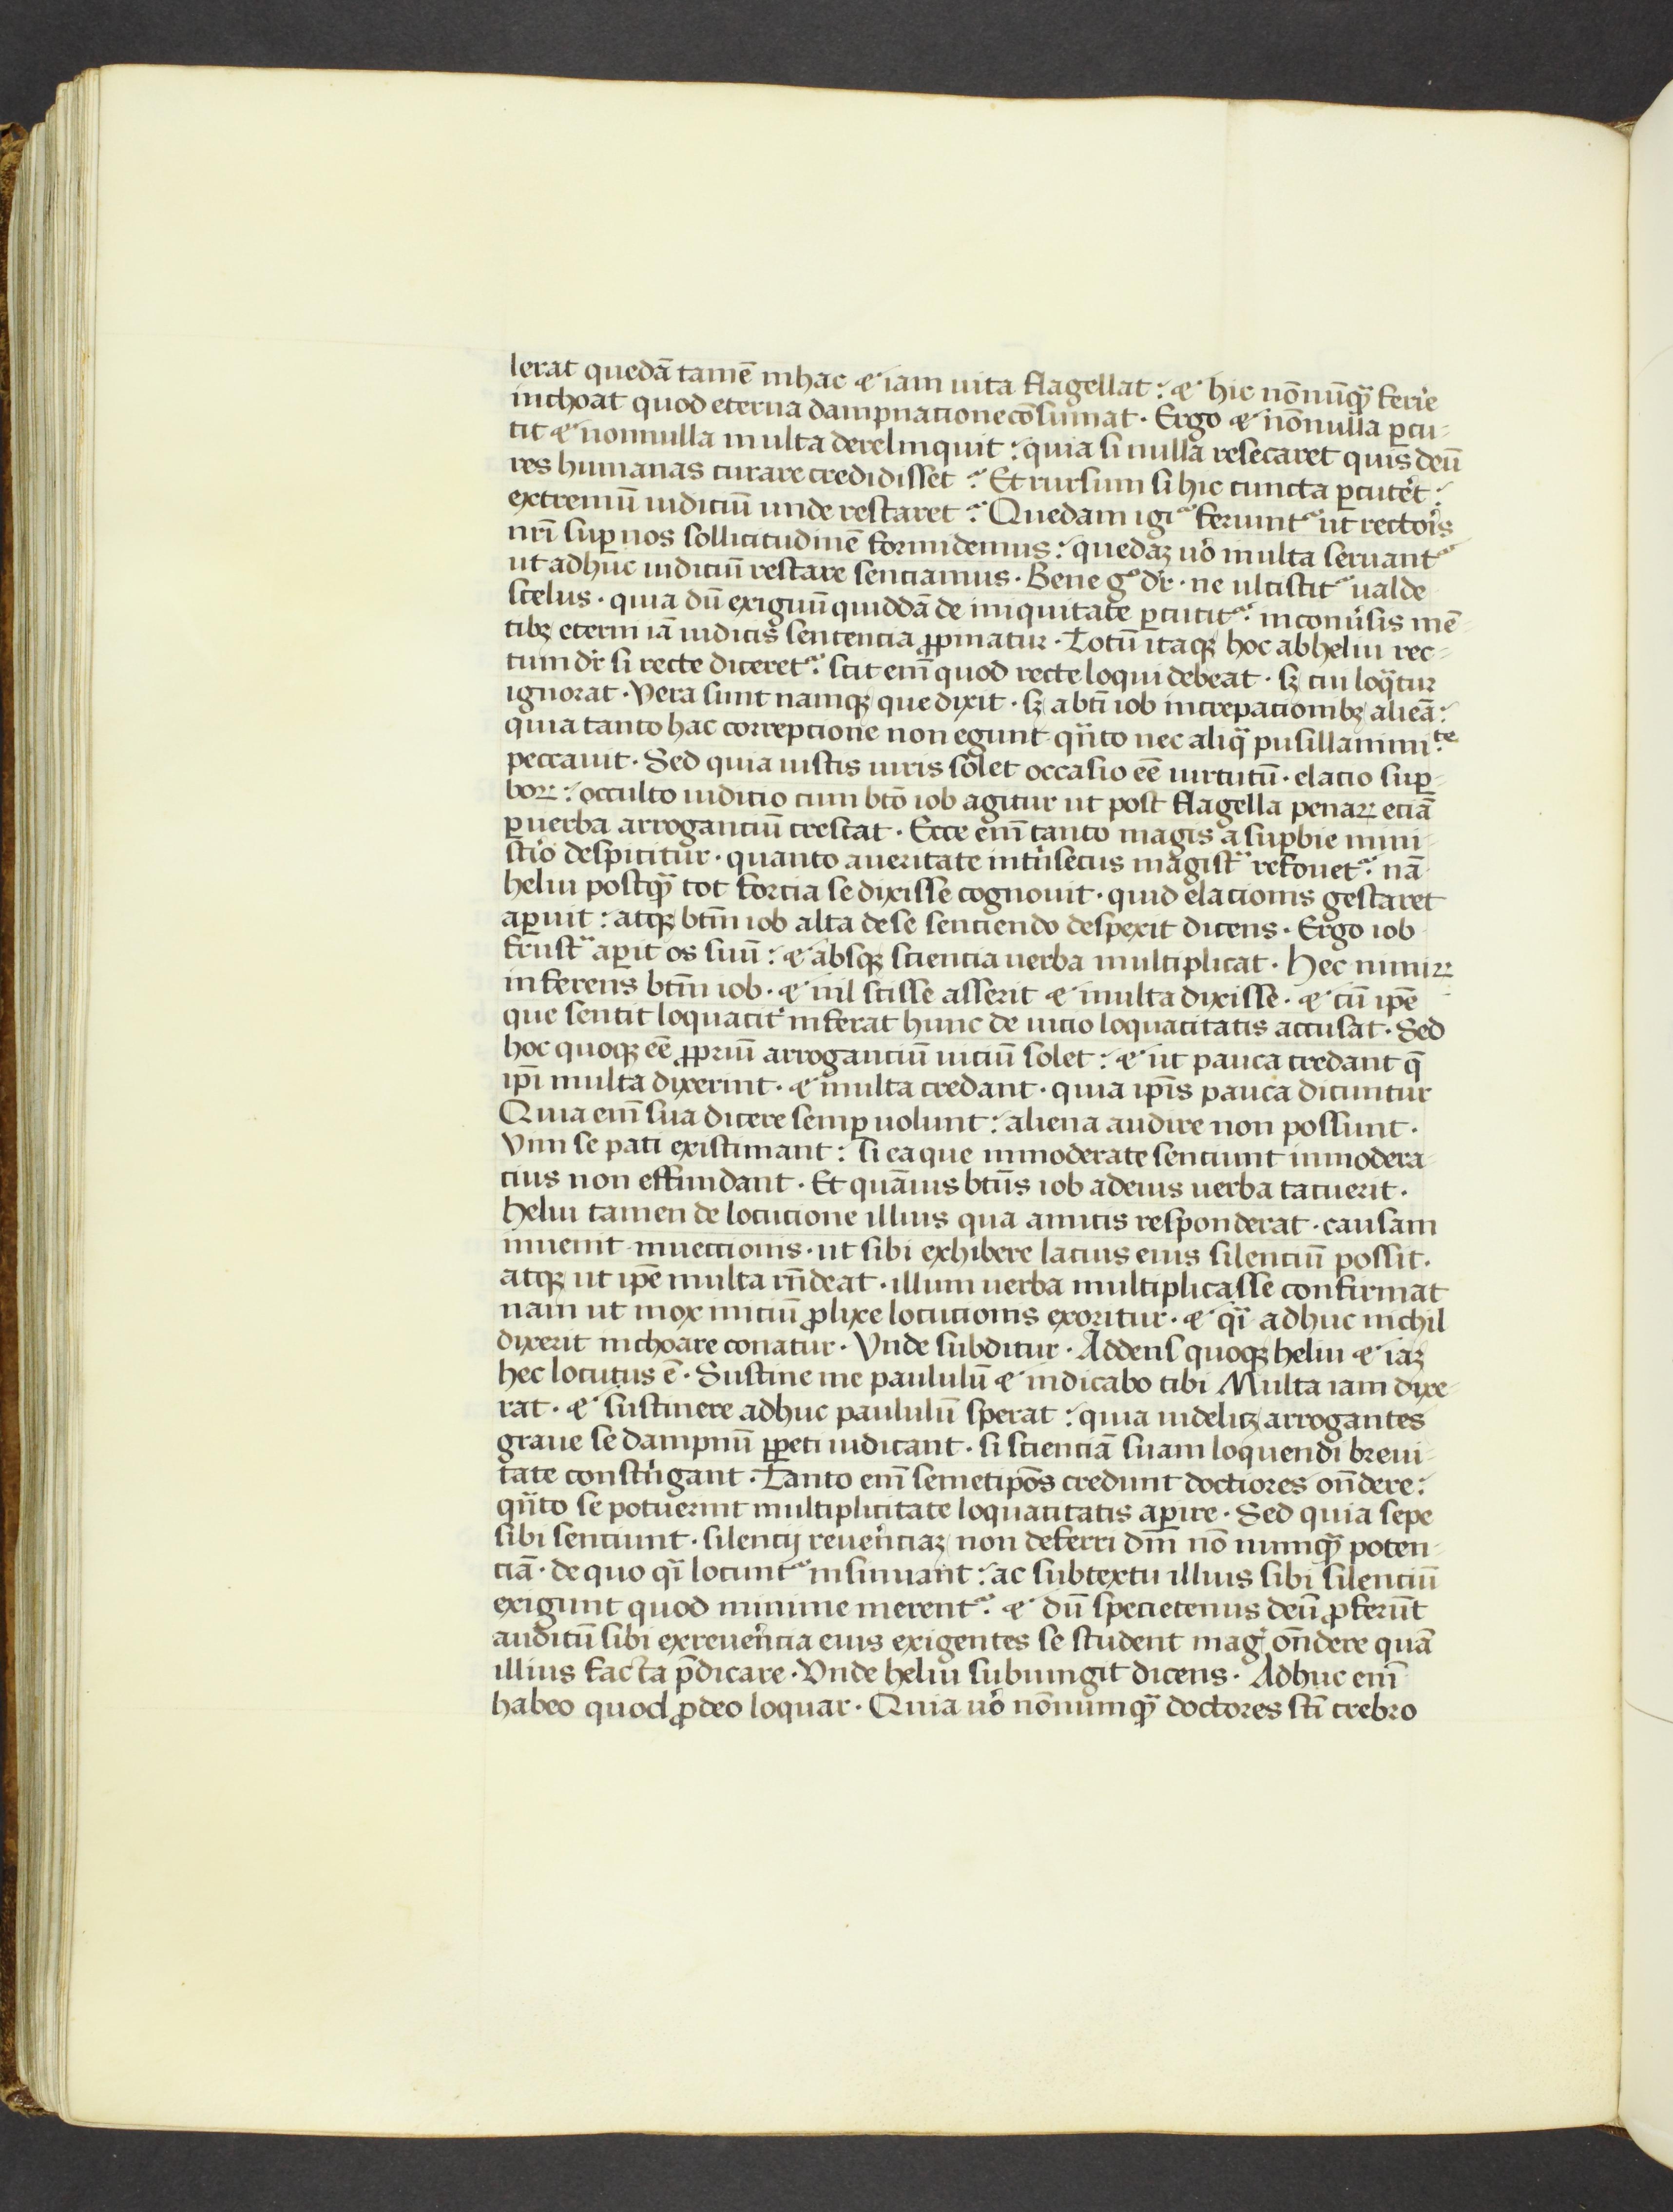 lerat quedā tamē in hac ⁊ iam uita flagellat: ⁊ hic nōnūqᷓ ferire
inchoat quod eterna dampnatione cōsumat. Ergo ⁊ nōnulla ꝑcu-
tit ⁊ nonnulla inulta derelinquit: quia si nulla resecaret quis deū
res humanas curare credidisset? Et rursum si hic cuncta ꝑcuteret:
extremū iudiciū unde restaret? Quedam igiᷓ feriuntᷓ ut rectoris
nr̄i suꝑ nos sollicitudinē formidemus: quedaꝫ uo inulta seruantᷓ
ut adhuc iudiciū restare senciamus. Bene gᵒ dr̄. ne ulcistitᷓ ualde
scelus. quia dū exiguū quiddā de iniquitate ꝑcutitᷓ: in conuersis mē-
tibꝫ eterni iā iudicis sentencia ꝓpinatur. Totū itaqꝫ hoc ab heliu rec-
tum dr̄ si recte diceretᷓ: scit eni̅ quod recte loqui debeat. sꝫ cui loqᷓtur
ignorat. Vera sunt namqꝫ que dixit. sꝫ a bt̄i iob increpacionibꝫ alienā:
quia tanto hac correpcione non egunt qᷓnto nec aliqᷓ pusillanimiᵗᵉ
peccauit. Sed quia iustis uiris solet occasio eē uirtutū. elacio suꝑ-
boꝝ: occulto iudicio cum bt̄o iob agitur ut post flagella penaꝝ eciā
ꝑ uerba arroganciū crescat. Ecce eni̅ tanto magis a suꝑbie mini-
stro despicitur. quanto a ueritate intrīsecus magistᷓ refouetᷓ. nā
heliu postqᷓ tot forcia se dixisse cognouit. quid elacionis gestaret
aꝑuit: atqꝫ btm̄ iob alta de se senciendo despexit dicens. Ergo iob
frustᷓ aꝑit os suū: ⁊ absqꝫ sciencia uerba multiplicat. Hec nimiꝝ
inferens btm̄ iob. ⁊ nil scisse asserit ⁊ multa dixisse. ⁊ cū ip̄e
que sentit loquacitᷓ inferat hunc de uicio loquacitatis accusat. Sed
hoc quoqꝫ eē ꝓpriū arroganciū uiciū solet: ⁊ ut pauca credant q̄
ip̄i multa dixerint. ⁊ multa credant. quia ip̄is pauca dicuntur
Quia eni̅ sua dicere semꝑ uolunt: aliena audire non possunt.
Vim se pati existimant: si ea que inmoderate senciunt inmodera-
cius non effundant. Et quāuis bt̄us iob ad eius uerba tacuerit.
heliu tamen de locucione illius qua amicis responderat. causam
inuenit inueccionis. ut sibi exhibere lacius eius silenciū possit.
atqꝫ ut ip̄e multa rn̄deat. illum uerba multiplicasse confirmat
nam ut mox iniciū ꝓlixe locucionis exoritur. ⁊ qᷓi adhuc nichil
dixerit inchoare conatur. Vnde subditur. Addens quoqꝫ heliu ⁊ iaꝫ
hec locutus ē. Sustine me paululū ⁊ indicabo tibi Multa iam dixe-
rat. ⁊ sustinere adhuc paululū sperat: quia uidelicꝫ arrogantes
graue se dampnū ꝑpeti iudicant. si scienciā suam loquendi breui-
tate constrīgant. Tanto eni̅ semetip̄os credunt doctiores on̄dere:
qᷓnto se potuerint multiplicitate loquacitatis aꝑire. Sed quia sepe
sibi senciunt. silencij reuerenciaꝫ non deferri dm̄ nō numqᷓ poten-
ciā. de quo qᷓi locuntᷓ insinuant: ac sub textu illius sibi silenciū
exigunt quod minime merentᷓ. ⁊ dū specietenus deū ꝓferūt
auditū sibi ex reuerencia eius exigentes se student magᷤ on̄dere quā
illius facta p̄dicare. Vnde heliu subiungit dicens. Adhuc eni̅
habeo quod ꝓ deo loquar. Quia uo nōnumqᷓ doctores st̄i crebro